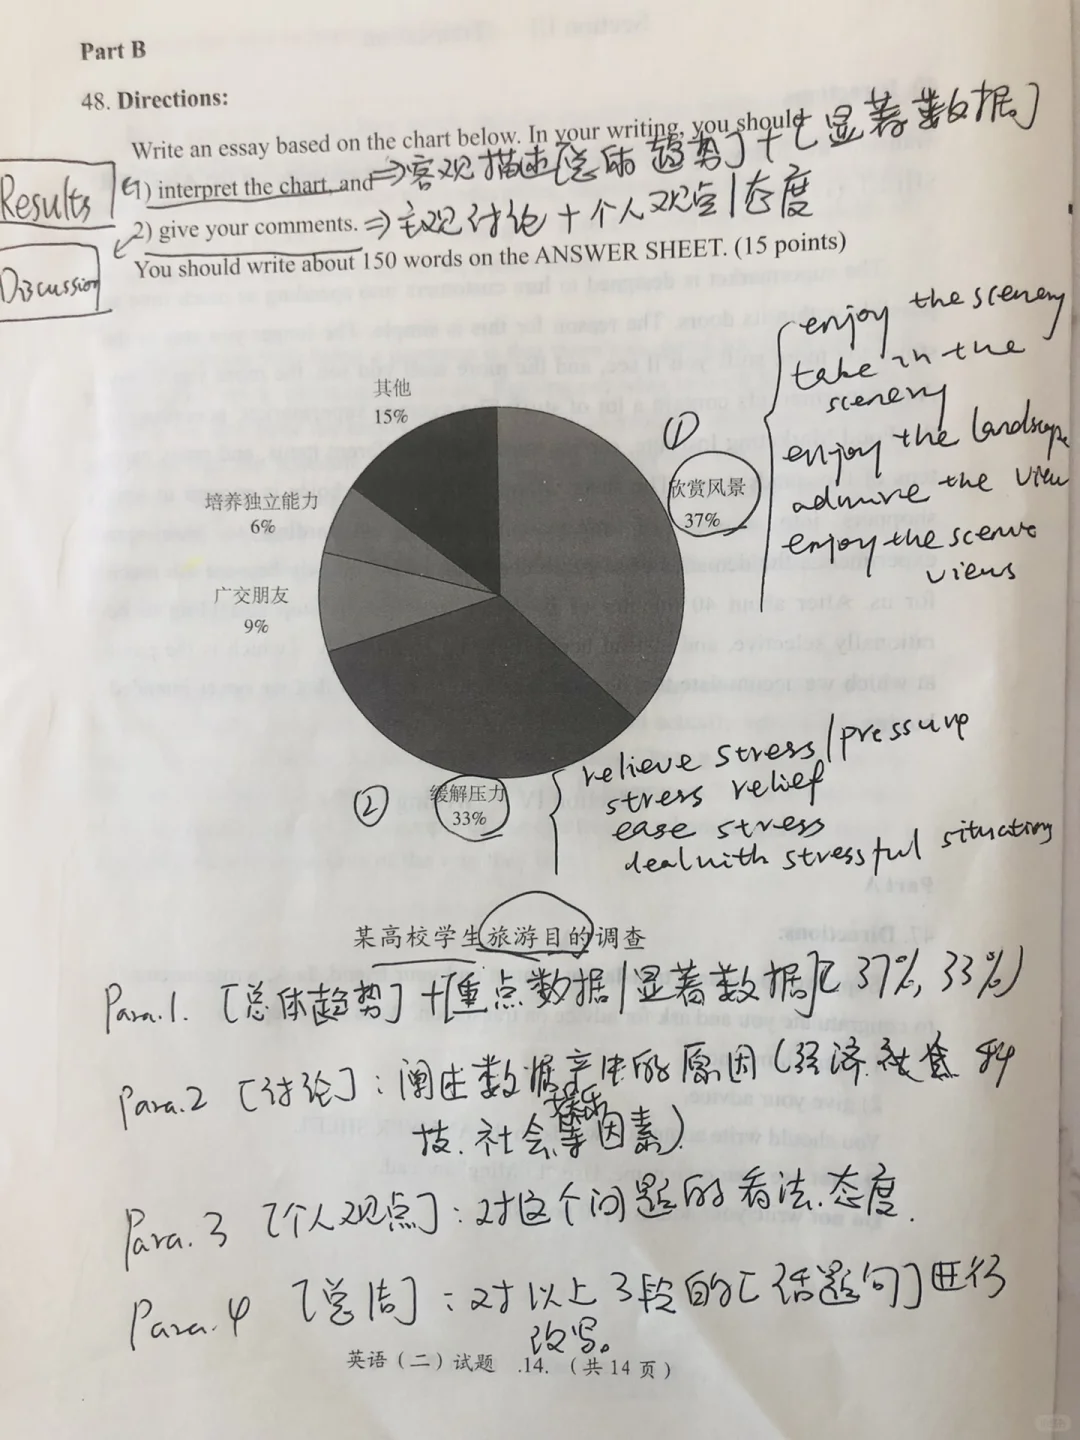 Part B
48. Directions:
Write an essay based on the chart below. In your writing, you should
1) interpret the chart, and ⇒客观描述[总体趋势]+[显著数据]
2) give your comments. ⇒主观讨论+个人观点/态度
You should write about 150 words on the ANSWER SHEET. (15 points)
Results
Discussion
其他
15%
培养独立能力
6%
广交朋友
9%
①
欣赏风景
37%
enjoy the scenery
take in the
scenery
enjoy the landscape
admire the view
enjoy the scenic
views
②
缓解压力
33%
relieve stress/pressure
stress relief
ease stress
deal with stressful situations
某高校学生旅游目的调查
Para.1. [总体趋势]+[重点数据/显著数据](37%, 33%)
Para.2 [讨论]:阐述数据产生的原因(经济.社会 科
技.社会.等因素).
Para.3 [个人观点]:对这个问题的看法.态度.
Para.4 [总结]:对以上3段的[话题句]进行
改写。
英语(二)试题 .14. (共14页)